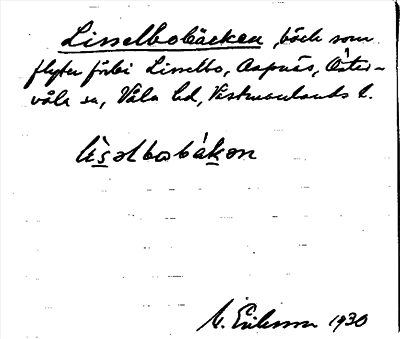 Lisselbobäcken, bäck som
flyter förbi Lisselbo, Aspnäs, Öster-
våla sn, Våla hd, Västmanlands l.
lìsəlbobákən
M. Eriksson 1930